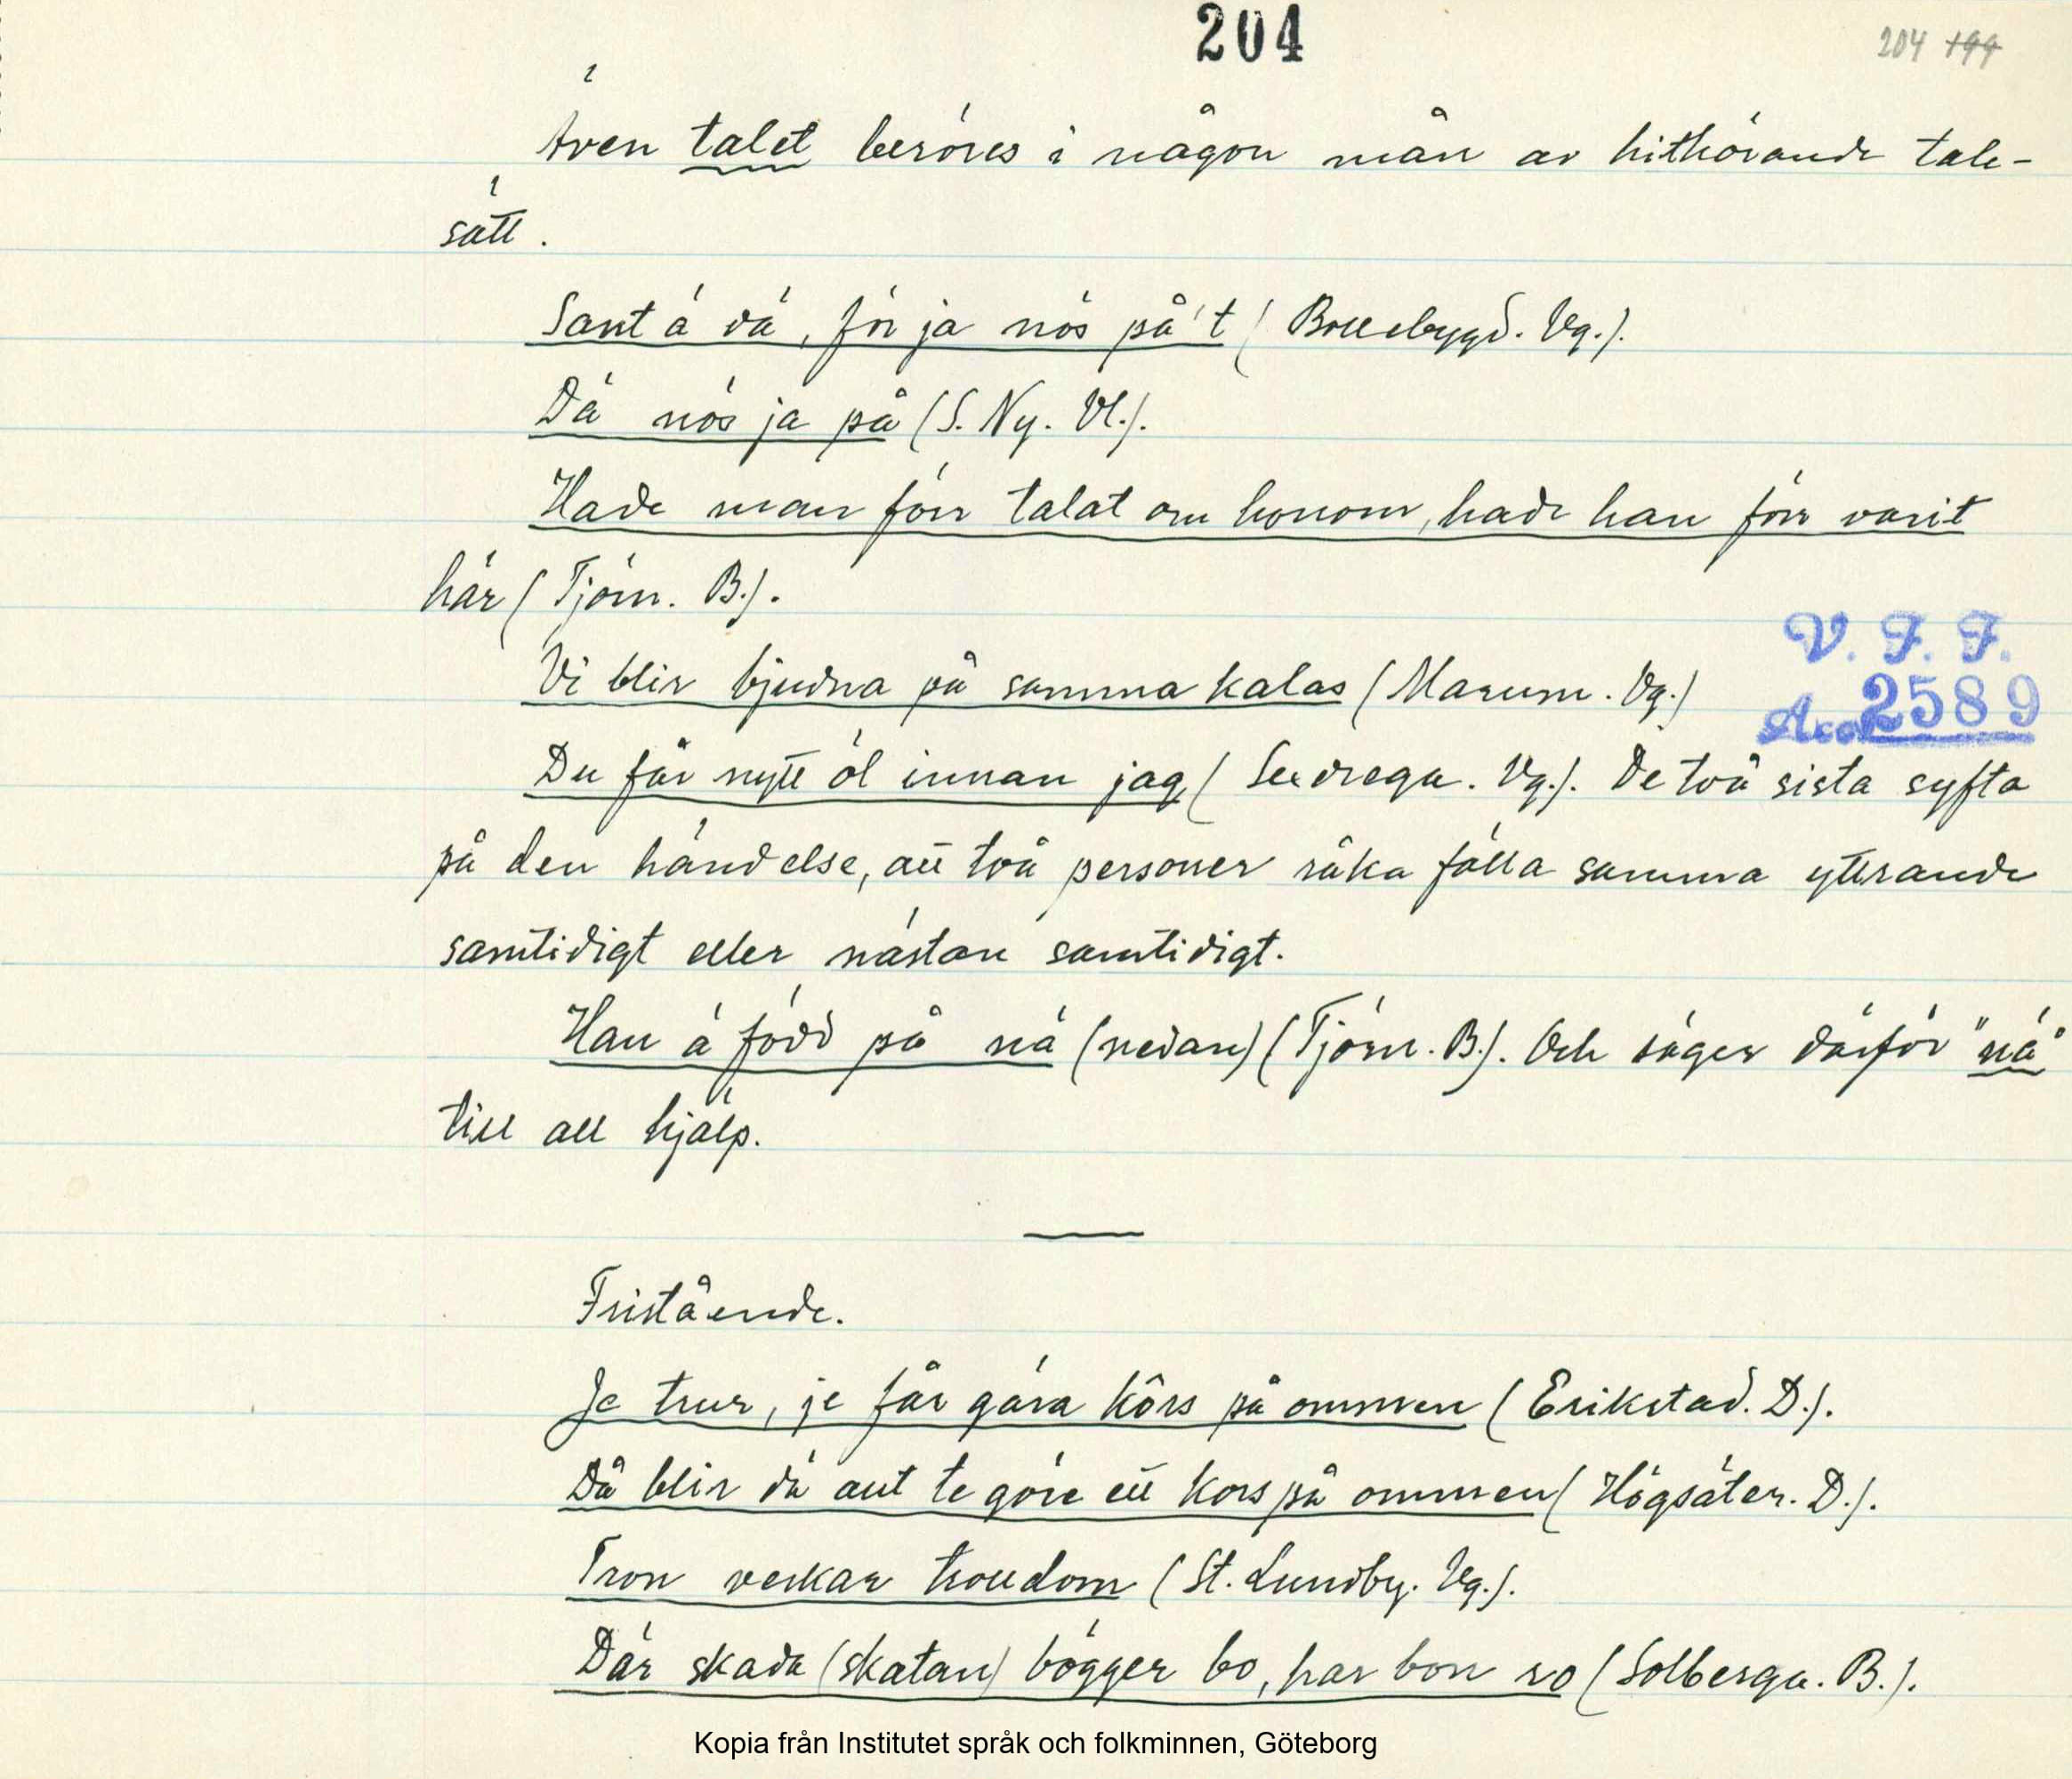 204
204 199
Även talet beröres i någon mån av hithörande tale-
sätt.
Sant ä dä, för ja nös på't (Bollebygd. Vg.).
Dä nös ja på (S. Ny. Vl.).
Hade man förr talat om honom, hade han förr varit
här (Tjörn. B.).
Vi blir bjudna på samma kalas (Marum. Vg.)
V. F. F.
Acc. 2589
Du får nytt öl innan jag (Seedrega. Vg.). De två sista syfta
på den händelse, att två personer råka fälla samma yttrande
samtidigt eller nästan samtidigt.
Han ä född på nä (nedan) (Tjörn. B.). Och säger därför "nä"
till all hjälp.
Fristående.
Je trur, je får gära kôrs på ommen (Erikstad. D.).
Då blir dä ant te göre ett kors på ommen (Högsäter. D.).
Tron verkar trolldom (St. Lundby. Vg.).
Där skada (skatan) bögger bo, har bon ro (Solberga. B.).
Kopia från Institutet språk och folkminnen, Göteborg